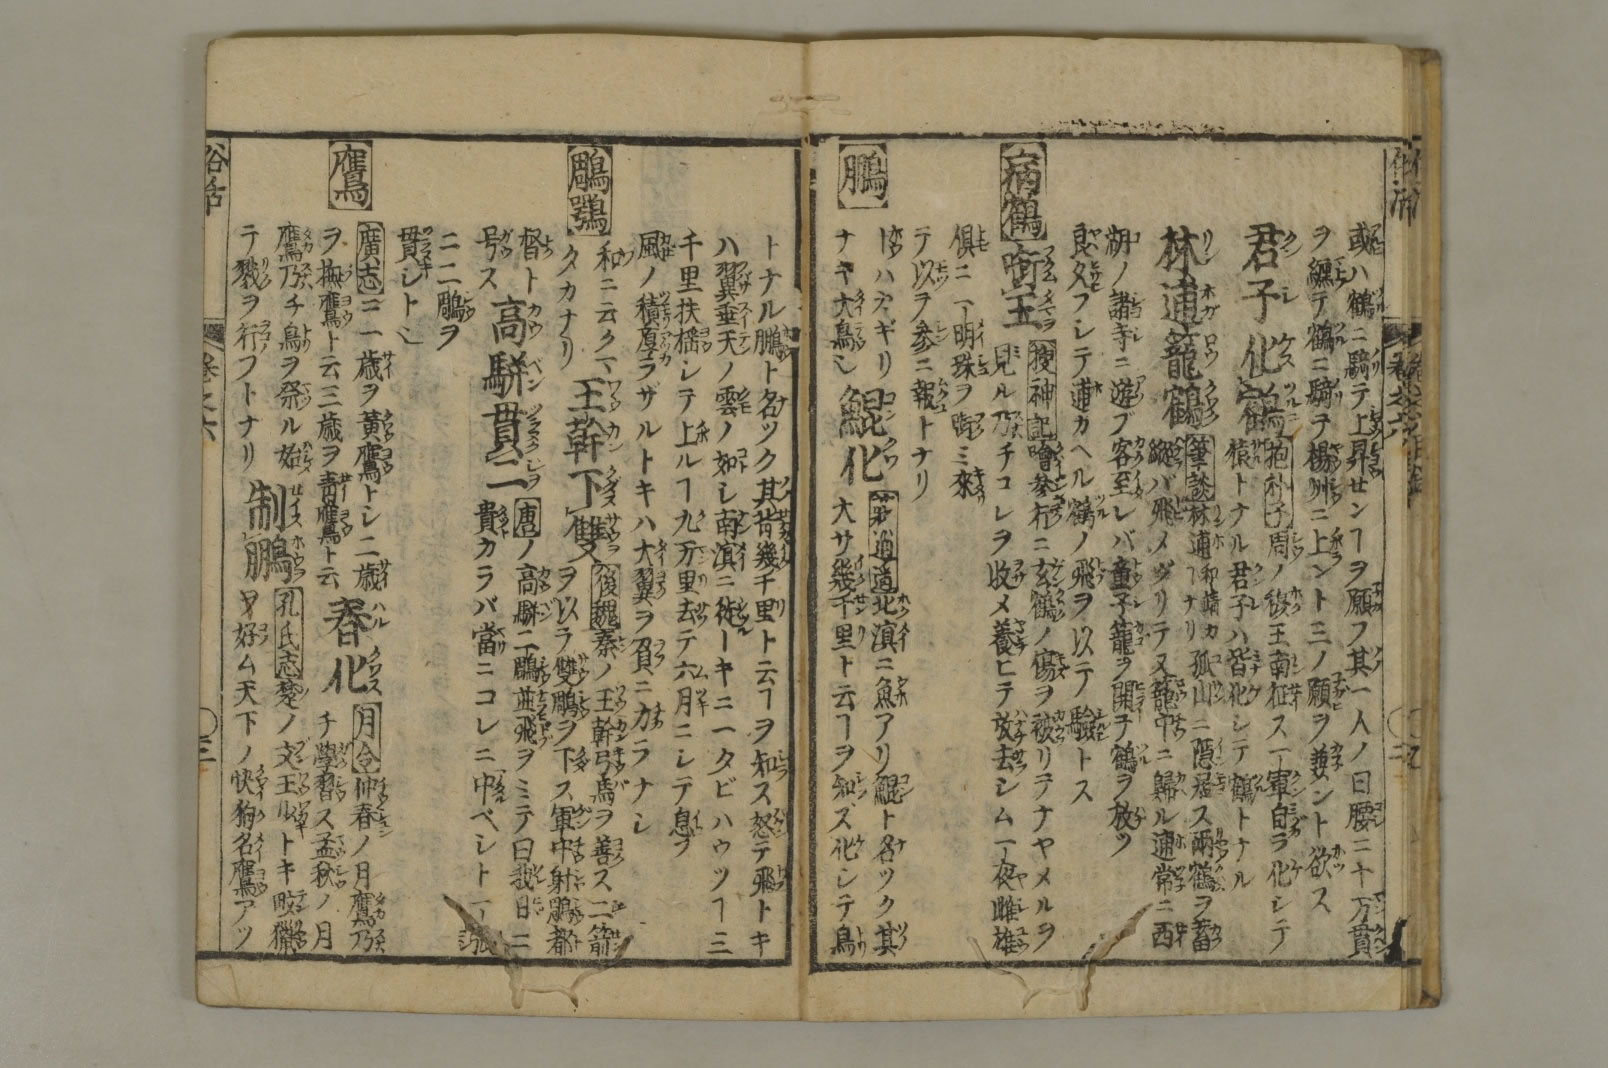 或ハ鶴ニ騎テ上昇センヿヲ願フ其一人ノ曰腰ニ十万貫
ヲ纏テ鶴ニ騎テ楊州ニ上ント三ノ願ヲ兼ント欲ス
君子化鶴 抱朴子 周ノ穆王南征ス一軍自ラ化シテ
猿トナル君子ハ皆化シテ鶴トナル
林逋籠鶴 筆談 林逋和靖カヿナリ孤山ニ隱居ス兩鶴ヲ畜
縱バ飛メグリテ又籠中ニ歸ル逋常ニ西
湖ノ諸寺ニ遊ブ客至レバ童子籠ヲ開チ鶴ヲ放ツ
良久フシテ逋カヘル鶴ノ飛ヲ以テノ驗トス
病鶴
啣玉 捜神記 噲參行ニ玄鶴ノ傷ヲ被リテナヤメルヲ
見ル乃チコレヲ收メ養ヒテ放去シム一夜雌雄
俱ニ一明珠ヲ啣ミ來
テ以ヲ參ニ報トナリ
鵬
鯤化 荘逍遥 北溟ニ魚アリ鯤ト名ツク其
大サ幾千里ト云ヿヲ知ズ化シテ鳥
トナル鵬ト名ツク其背幾千里ト云ヿヲ知ス怒テ飛トキ
ハ翼垂天ノ雲ノ如シ南溟ニ徙ーキニ一タビハウツヿ三
千里扶揺シテ上ルヿ九万里去テ六月ニシテ息フ
風ノ積厚ラザルトキハ大翼ヲ負ニカラナシ
鵰鶚
和ニ云クマ
タカナリ
王幹下雙 後魏 秦ノ王幹弓馬ヲ善ス二箭
ヲ以ラ雙鵰ヲ下ス軍中射鵰都
督ト
号ス
高駢貫二 唐ノ高駢二鵰並飛ヲミテ曰我日ニ
貴カラバ當ニコレニ中ベシト一張
ニ二鵰ヲ
貫シト
鷹
廣志ニ一歳ヲ黃鷹トシ二歳
ヲ撫鷹ト云三歳ヲ青鷹ト云
春化 月令 仲春ノ月鷹乃
チ學習ス孟秋ノ月
鷹乃チ鳥ヲ祭ル始
テ戮ヲ行フトナリ
制鵬 孔氏志 楚ノ文王ルトキ畋獵
ヲ好ム天下ノ快狗名鷹アツ
巻之六